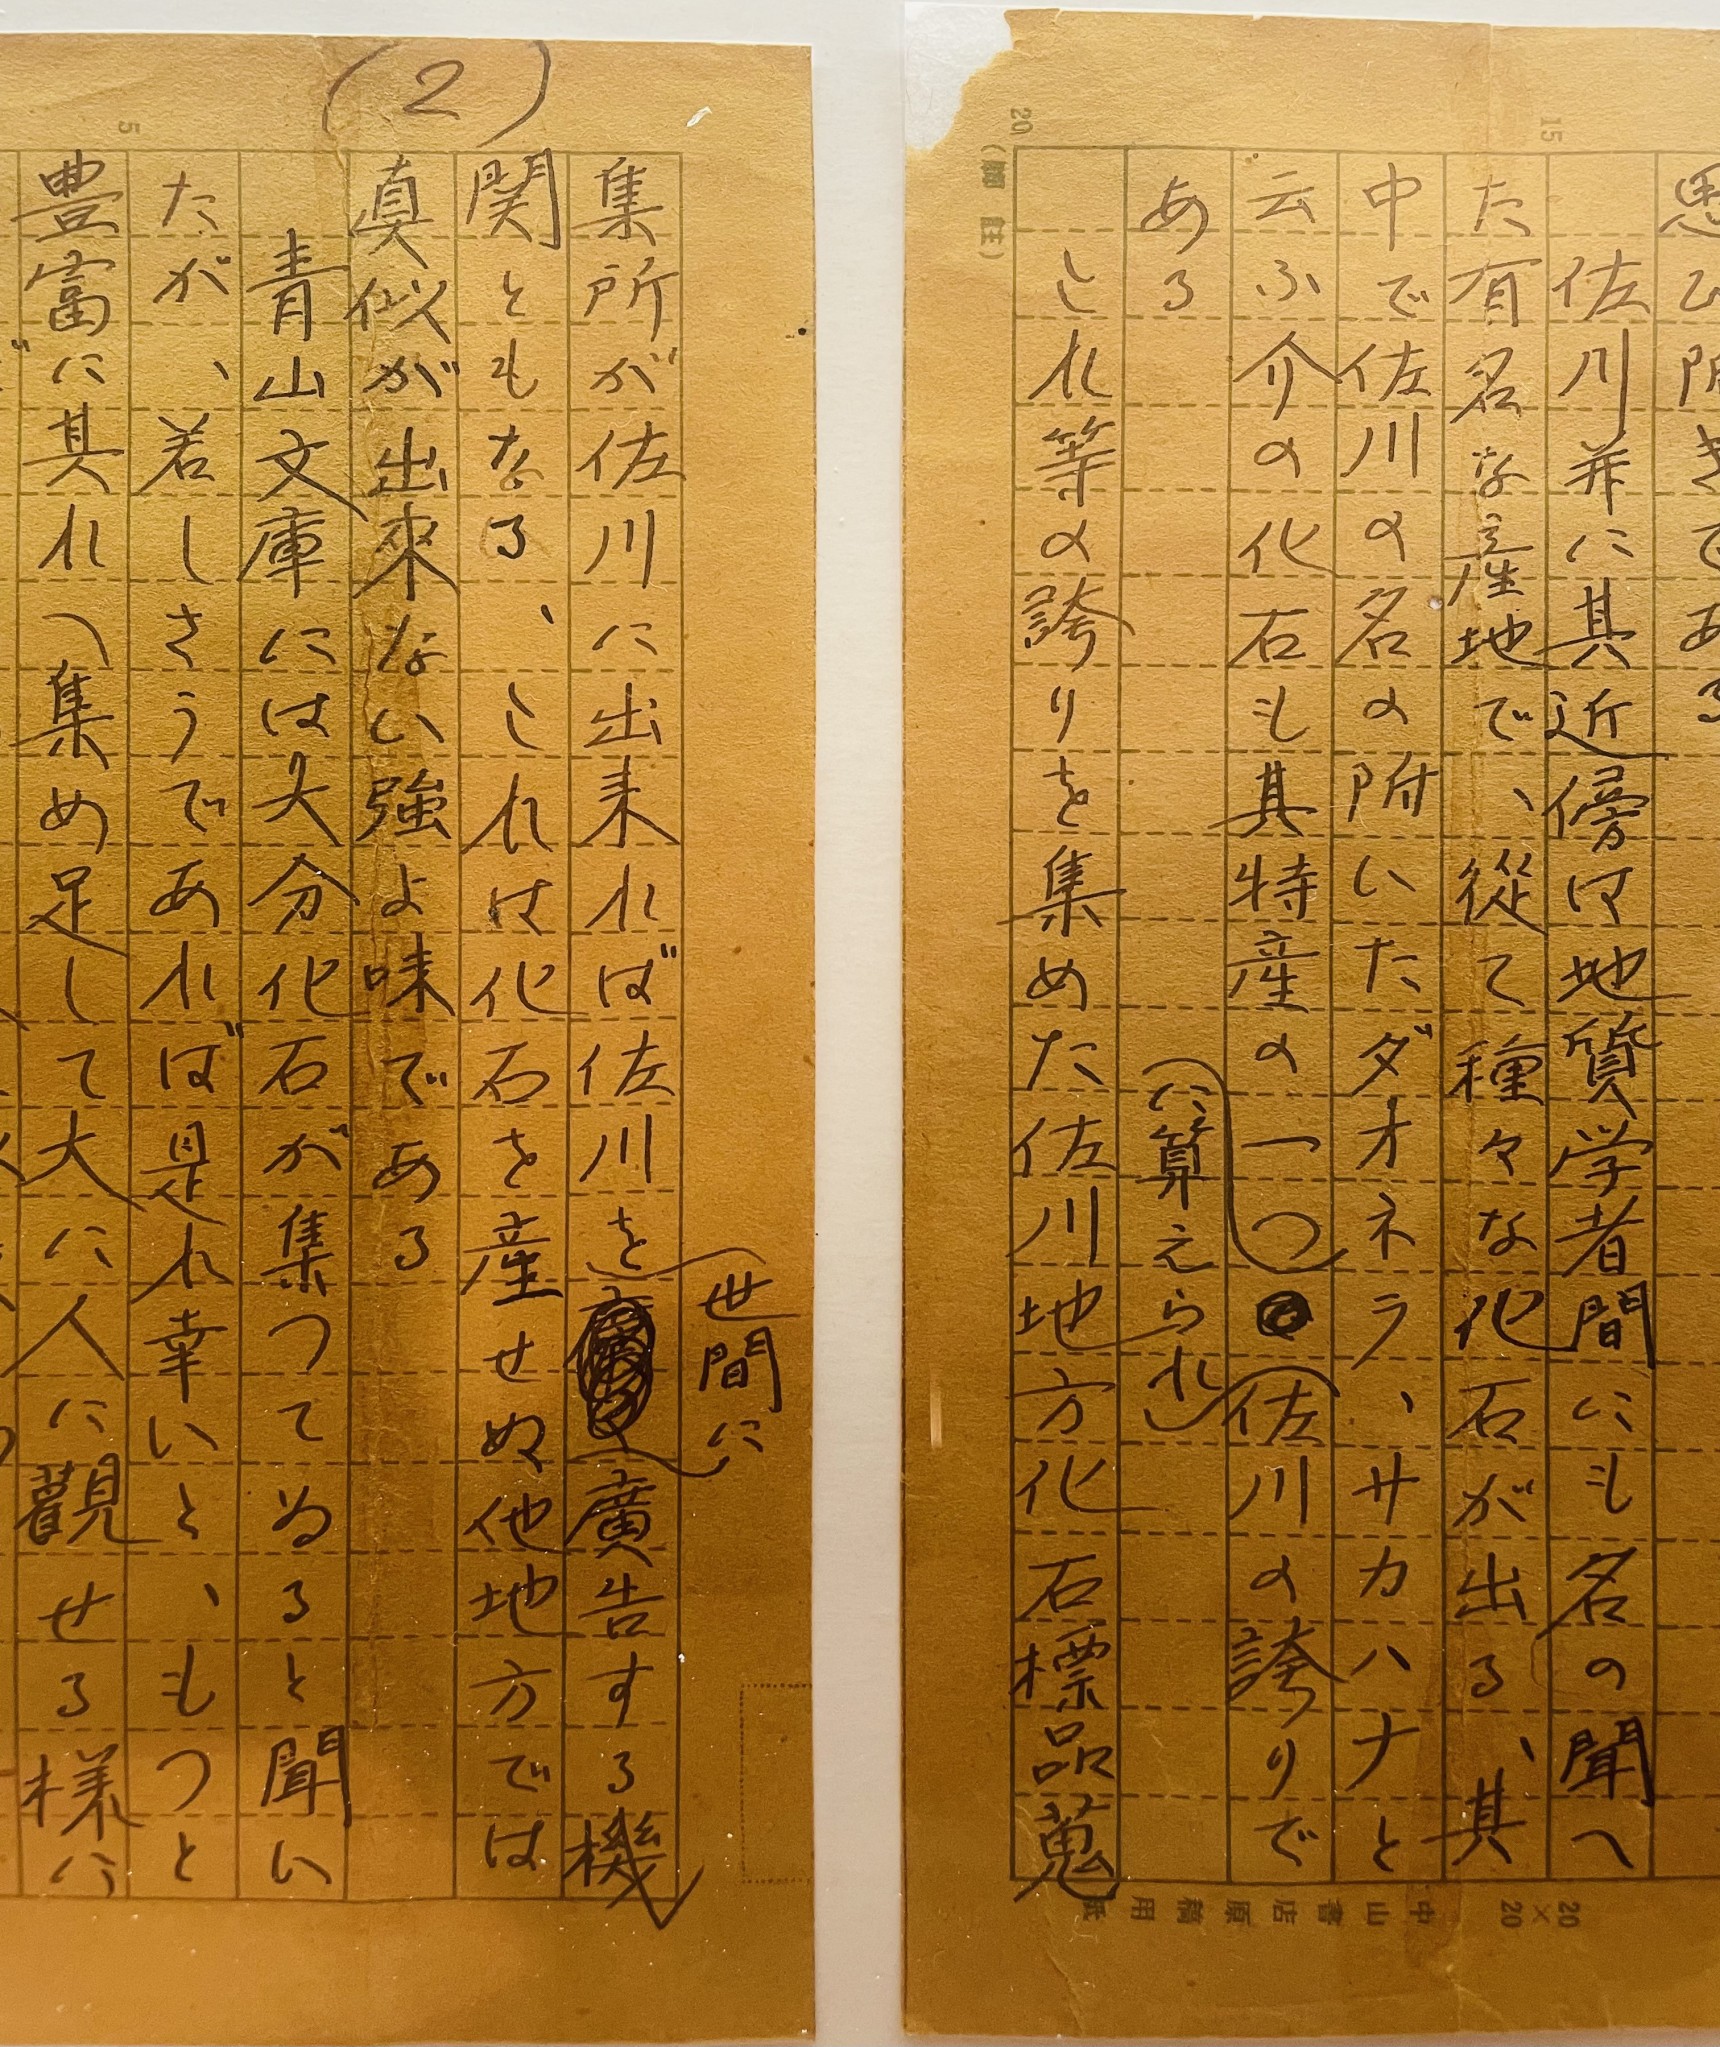 思ひ所きである
佐川并に其近傍は地質学者間にも名の聞へ
た有名な産地で、從て種々な化石が出る、其
中で佐川の名の附いたダオネラ、サカハナと
云ふ介の化石も其特産の一つ
(に算えられ)
佐川の誇りで
ある
これ等の誇りを集めた佐川地方化石標品蒐
20
15
20×20
中山書店原稿用紙
(2)
5
集所が佐川に出来れば佐川を
世間に
廣告する機
関ともなる、これは化石を産せぬ他地方では
真似が出來ない強よ味である
青山文庫には大分化石が集つてゐると聞い
たが、若しさうであれば是れ幸いと、もつと
豊富に其れへ集め足して大に人に観せる様に